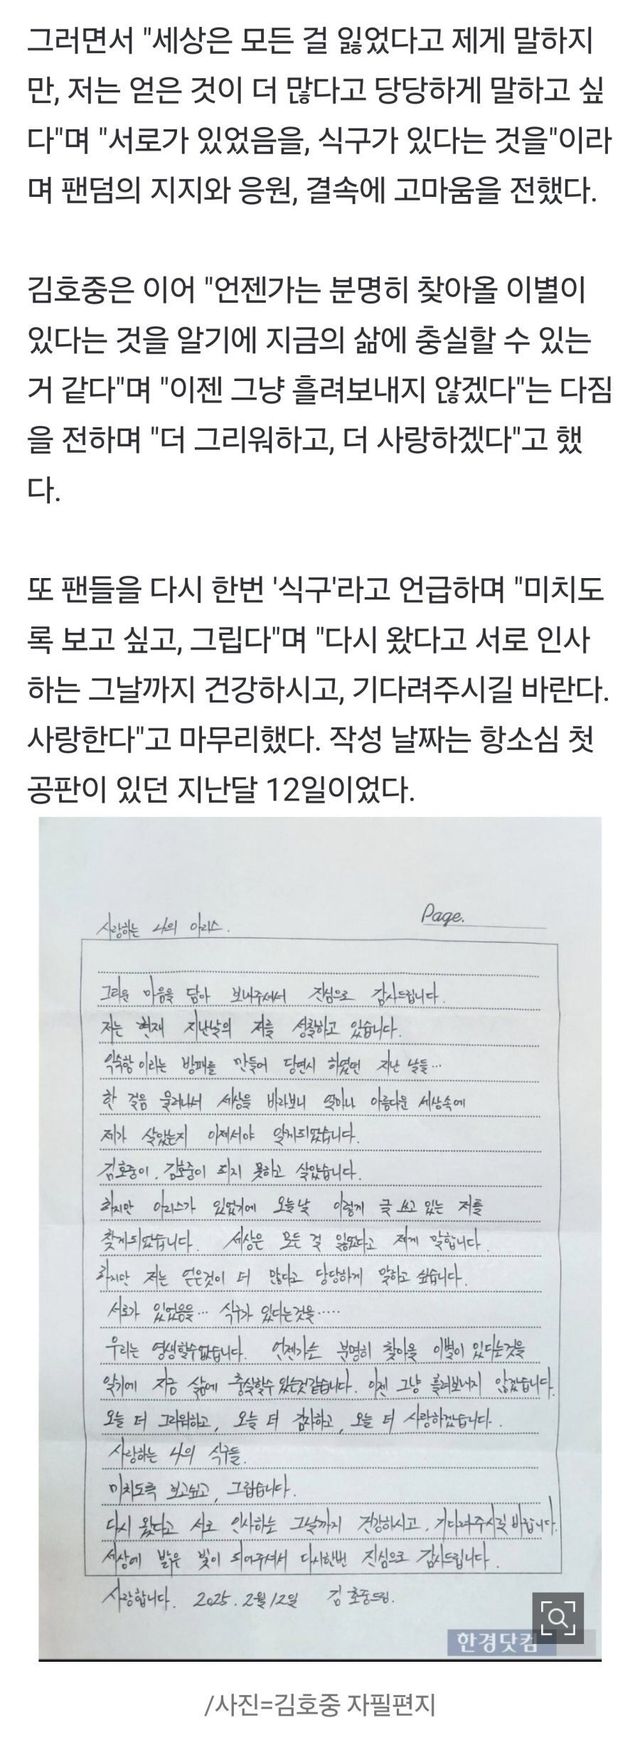 그러면서 "세상은 모든 걸 잃었다고 제게 말하지
만, 저는 얻은 것이 더 많다고 당당하게 말하고 싶
다"며 "서로가 있었음을, 식구가 있다는 것을"이라
며 팬덤의 지지와 응원, 결속에 고마움을 전했다.
김호중은 이어 "언젠가는 분명히 찾아올 이별이
있다는 것을 알기에 지금의 삶에 충실할 수 있는
거 같다"며 "이젠 그냥 흘려보내지 않겠다"는 다짐
을 전하며 "더 그리워하고, 더 사랑하겠다"고 했
다.
또 팬들을 다시 한번 '식구'라고 언급하며 "미치도
록 보고 싶고, 그립다"며 "다시 왔다고 서로 인사
하는 그날까지 건강하시고, 기다려주시길 바란다.
사랑한다"고 마무리했다. 작성 날짜는 항소심 첫
공판이 있던 지난달 12일이었다.
Page.
사랑하는 나의 아리스.
그리운 마음을 담아 보내주셔서 진심으로 감사드립니다.
저는 현재 지난날의 저를 성찰하고 있습니다.
이라는 방패를 만들어 당연시 하였던 지난 날들…
한 걸음 물러나서 세상을 바라보니 얼마나 아름다운 세상속에
제가 살았는지 이제서야 알게되었습니다.
김호중이, 김호중이 되지 못하고 살았습니다.
하지만 아리스가 있었기에 오늘날 이렇게 글 쓰고 있는 저를
찾게되었습니다. 세상은 모든 걸 잃었다고 제게 말합니다.
하지만 저는 얻은것이 더 많다고 당당하게 말하고 싶습니다.
서로가 있었음을… 식구가 있다는것을……
우리는 영생할수없습니다. 언젠가는 분명히 찾아올 이별이 있다는것을
알기에 지금 삶에 충실할수 있는것같습니다. 이젠 그냥 흘려보내지 않겠습니다.
오늘 더 그리워하고, 오늘 더 감사하고, 오늘 더 사랑하겠습니다.
사랑하는 나의 식구들.
미치도록 보고싶고, 그립습니다.
다시 왔다고 서로 인사하는 그날까지 건강하시고, 기다려주시길 바랍니다.
세상에 밝은 빛이 되어주셔서 다시한번 진심으로 감사드립니다.
사랑합니다. 2025. 2월 12일 김호중드림.
한경닷컴
/사진=김호중 자필편지